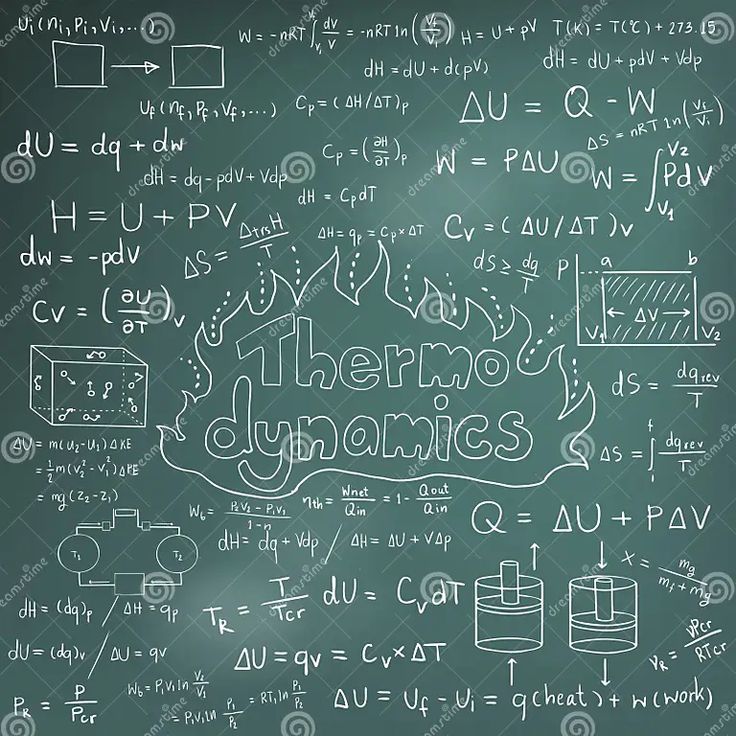 Ui(ni,Pi,Vi,...)
W = -nRT ∫ᵥ₁ᵛ dv/V = -nRT ln(Vf/Vi)
H = U + pV
T(K) = T(°C) + 273.15
dH = dU + d(pV)
dH = dU + pdV + Vdp
Uf(nf,Pf,Vf,...)
Cp = (ΔH/ΔT)p
ΔU = Q - W
ΔS = nRT ln(Vf/Vi)
dU = dq + dw
Cp = (∂H/∂T)p
W = PΔU
W = ∫V₁^V₂ PdV
dH = dq - pdV + Vdp
dH = CpdT
H = U + PV
ΔS = ΔtrsH/T
ΔH = qp = Cp×ΔT
Cv = (ΔU/ΔT)v
dw = -pdV
dS ≥ dq/T
P a b
ΔV
V₁ V₂
Cv = (∂U/∂T)v
Thermo
dynamics
dS = dqrev/T
ΔU = m(u₂-u₁)ΔKE
= 1/2 m(v₂²-v₁²)ΔPE
= mg(z₂-z₁)
ΔS = ∫ᵢᶠ dqrev/T
Wb = (P₂V₂ - P₁V₁)/(1-n)
nth = Wnet/Qin = 1 - Qout/Qin
Q = ΔU + PΔV
T₁ T₂
dH = dq + Vdp / ΔH = ΔU + VΔp
x = mg/(mf+mg)
dH = (dq)p / ΔH = qp
TR = T/Tcr
dU = CvdT
dU = (dq)v / ΔU = qv
ΔU = qv = Cv×ΔT
VR = VPcr/RTcr
PR = P/Pcr
Wb = P₁V₁ ln V₂/V₁
= P₁V₁ ln P₁/P₂ = RT₁ ln P₁/P₂
ΔU = Uf - Ui = q(heat) + w(work)
dreamstime